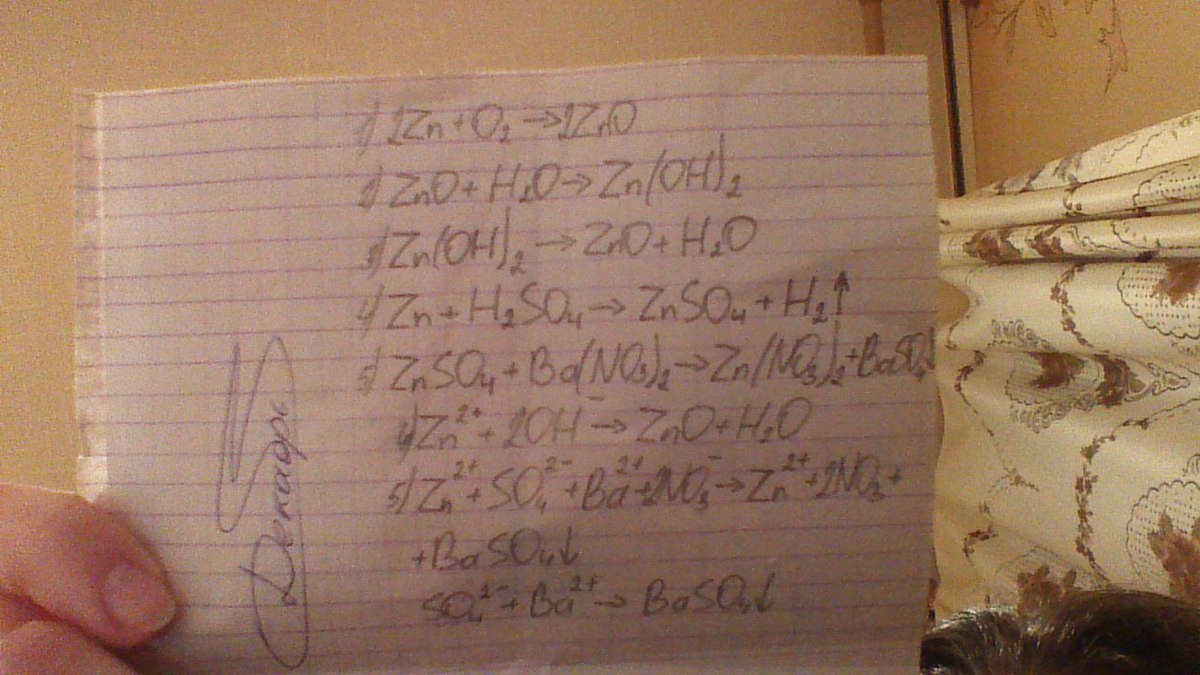 1) 2Zn + O₂ → 2ZnO
2) ZnO + H₂O → Zn(OH)₂
3) Zn(OH)₂ → ZnO + H₂O
4) Zn + H₂SO₄ → ZnSO₄ + H₂↑
5) ZnSO₄ + Ba(NO₃)₂ → Zn(NO₃)₂ + BaSO₄↓
4) Zn²⁺ + 2OH⁻ → ZnO + H₂O
5) Zn²⁺ + SO₄²⁻ + Ba²⁺ + 2NO₃⁻ → Zn²⁺ + 2NO₃ +
+ BaSO₄↓
SO₄²⁻ + Ba²⁺ → BaSO₄↓